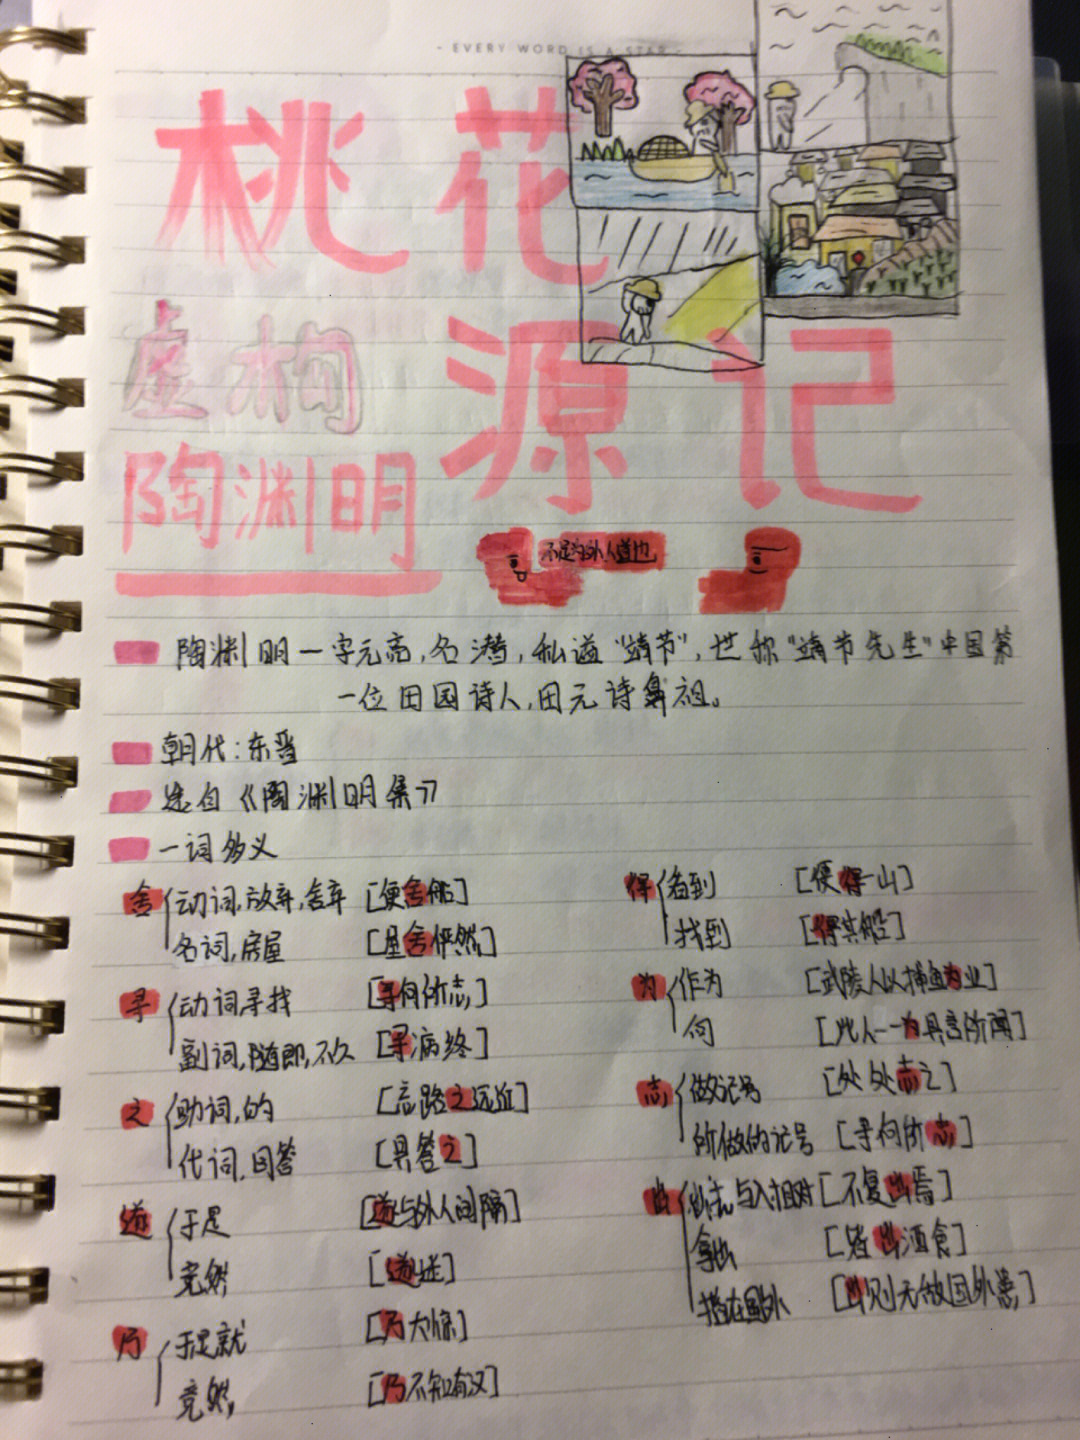 - EVERY WORD IS A STAR -
桃花
源记
虚构
陶渊明
不足为外人道也
陶渊明一字元亮,名潜,私谥"靖节",世称"靖节先生"中国第
一位田园诗人,田元诗鼻祖。
朝代:东晋
选自《陶渊明集》
一词多义
舍 动词,放弃,舍弃 [便舍船]
名词,房屋 [屋舍俨然]
寻 动词寻找 [寻向所志]
副词,随即,不久 [寻病终]
之 助词,的 [忘路之远近]
代词,回答 [具答之]
于是 与外人间隔]
竟然
乃 于是就 [乃大惊]
竟然 [乃不知有汉]
得 看到 [便得一山]
找到 [得其船]
为 作为 [武陵人以捕鱼为业]
向 [此人一一为具言所闻]
志 做记号 [处处志之]
所做的记号 [寻向所志]
出 出去,与入相对 [不复出焉]
拿出 [皆出酒食]
指在国外 [出则无敌国外患]